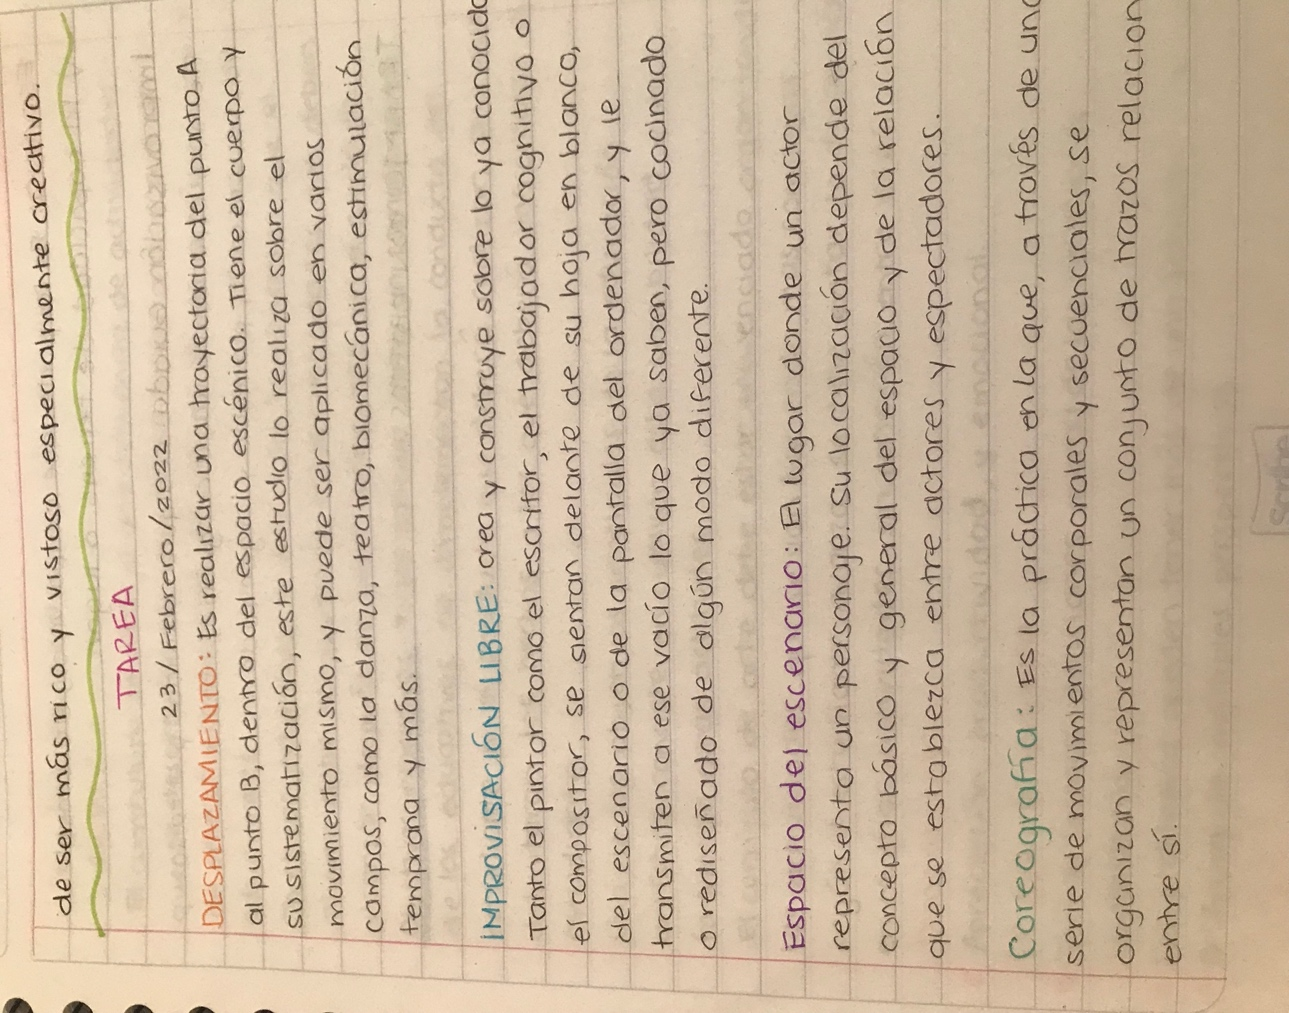 de ser más rico y vistoso especialmente creativo.
TAREA
23/Febrero/2022
DESPLAZAMIENTO: Es realizar una trayectoria del punto A
al punto B, dentro del espacio escénico. Tiene el cuerpo y
su sistematización, este estudio lo realiza sobre el
movimiento mismo, y puede ser aplicado en varios
campos, como la danza, teatro, biomecánica, estimulación
temprana y más.
IMPROVISACIÓN LIBRE: crea y construye sobre lo ya conocido
Tanto el pintor como el escritor, el trabajador cognitivo o
el compositor, se sientan delante de su hoja en blanco,
del escenario o de la pantalla del ordenador, y le
transmiten a ese vacío lo que ya saben, pero cocinado
o rediseñado de algún modo diferente.
Espacio del escenario: El lugar donde un actor
representa un personaje. Su localización depende del
concepto básico y general del espacio y de la relación
que se establezca entre actores y espectadores.
Coreografía: Es la práctica en la que, a través de una
serie de movimientos corporales y secuenciales, se
organizan y representan un conjunto de trazos relacion
entre sí.